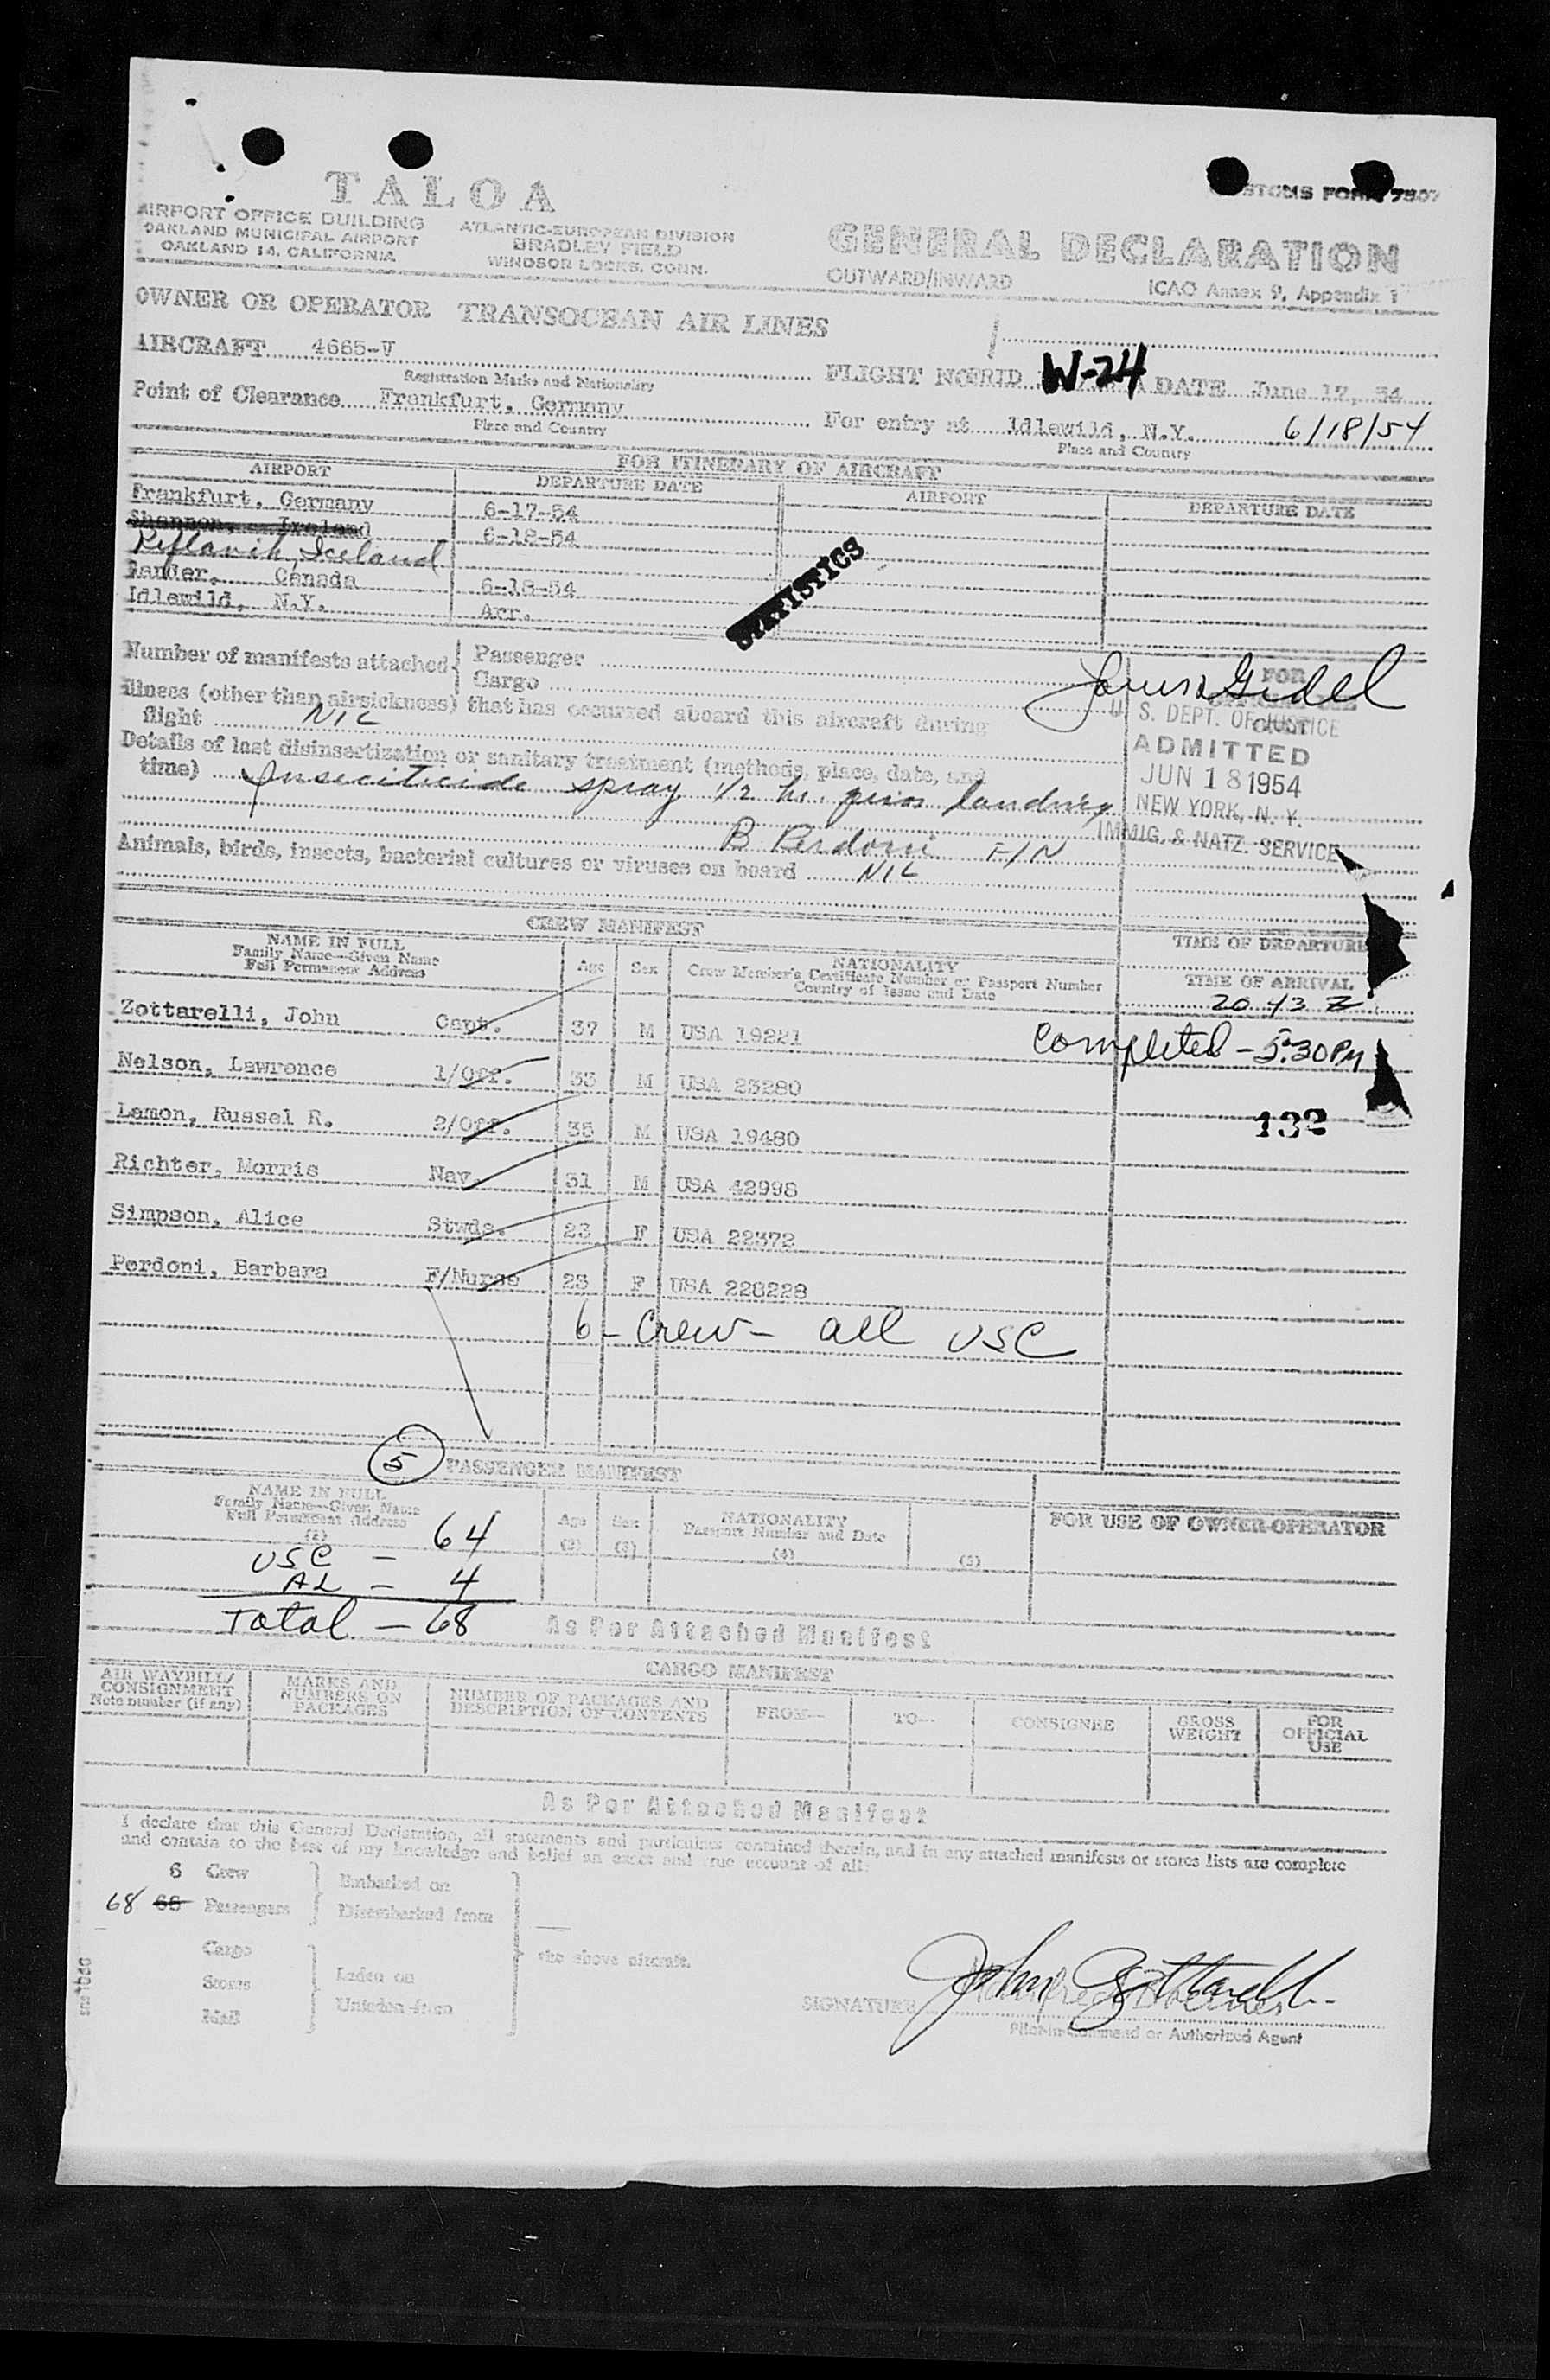 TALOA
CUSTOMS FORM 7507
AIRPORT OFFICE BUILDING
OAKLAND MUNICIPAL AIRPORT
OAKLAND 14, CALIFORNIA
ATLANTIC-EUROPEAN DIVISION
BRADLEY FIELD
WINDSOR LOCKS, CONN.
GENERAL DECLARATION
OUTWARD/INWARD
ICAO Annex 9, Appendix 1
OWNER OR OPERATOR TRANSOCEAN AIR LINES
AIRCRAFT 4665-V
Registration Marks and Nationality
FLIGHT NO W-24 DATE June 17, 54
Point of Clearance Frankfurt, Germany
Place and Country
For entry at Idlewild, N.Y. 6/18/54
Place and Country
FOR ITINERARY OF AIRCRAFT
AIRPORT DEPARTURE DATE AIRPORT DEPARTURE DATE
Frankfurt, Germany 6-17-54
Shannon, Ireland 6-18-54
Keflavik, Iceland
Gander, Canada 6-18-54
Idlewild, N.Y. Arr.
STATISTICS
Number of manifests attached { Passenger
Cargo
Illness (other than airsickness) that has occurred aboard this aircraft during
flight NIL
Details of last disinsectization or sanitary treatment (methods, place, date, and
time) Insecticide spray 1/2 hr. prior landing
B Perdoni F/N
Animals, birds, insects, bacterial cultures or viruses on board NIL
FOR
U. S. DEPT. OF JUSTICE
ADMITTED
JUN 18 1954
NEW YORK, N. Y.
IMMIG. & NATZ. SERVICE
CREW MANIFEST
NAME IN FULL
Family Name—Given Name
Full Permanent Address
Age Sex
NATIONALITY
Crew Member's Certificate Number or Passport Number
Country of Issue and Date
TIME OF DEPARTURE
TIME OF ARRIVAL
20 43 Z
Zottarelli, John Capt. 37 M USA 19221
completed - 5:30 PM
Nelson, Lawrence 1/Off. 33 M USA 23280
132
Lamon, Russel R. 2/Off. 35 M USA 19480
Richter, Morris Nav. 31 M USA 42998
Simpson, Alice Stwds. 23 F USA 22372
Perdoni, Barbara F/Nurse 23 F USA 228228
6 - Crew - all USC
5 PASSENGER MANIFEST
NAME IN FULL
Family Name—Given Name
Full Permanent Address
(1)
Age (2) Sex (3)
NATIONALITY
Passport Number and Date
(4) (5)
FOR USE OF OWNER-OPERATOR
USC - 64
AL - 4
Total - 68
As Per Attached Manifest
CARGO MANIFEST
AIR WAYBILL/
CONSIGNMENT
Note number (if any)
MARKS AND
NUMBERS ON
PACKAGES
NUMBER OF PACKAGES AND
DESCRIPTION OF CONTENTS
FROM— TO— CONSIGNEE
GROSS
WEIGHT
FOR
OFFICIAL
USE
As Per Attached Manifest
I declare that this General Declaration, all statements and particulars contained therein, and in any attached manifests or stores lists are complete
and contain to the best of my knowledge and belief an exact and true account of all:
6 Crew
68 Passengers
Embarked on
Disembarked from
Cargo
Stores
Mail
Laden on
Unladen from
the above aircraft.
SIGNATURE John Zottarelli
Pilot-in-Command or Authorized Agent